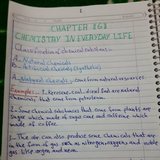 CHAPTER 1&1
CHEMISTRY IN EVERYDAY LIFE
Classification of chemical substances
A. Natural chemicals
B. Artificial chemicals (Synthetic)
A. Natural chemicals: come from natural resources.
Examples: 1. Kerosene, coal, diesel fuel are natural
chemicals that come from petroleum.
chemical substances that come from plants are
sugar which made of sugar cane and caffeine which
is made of coffee.
The air can also produce some chemicals that are
in the form of gas such as nitrogen, oxygen and
like argon and neon.